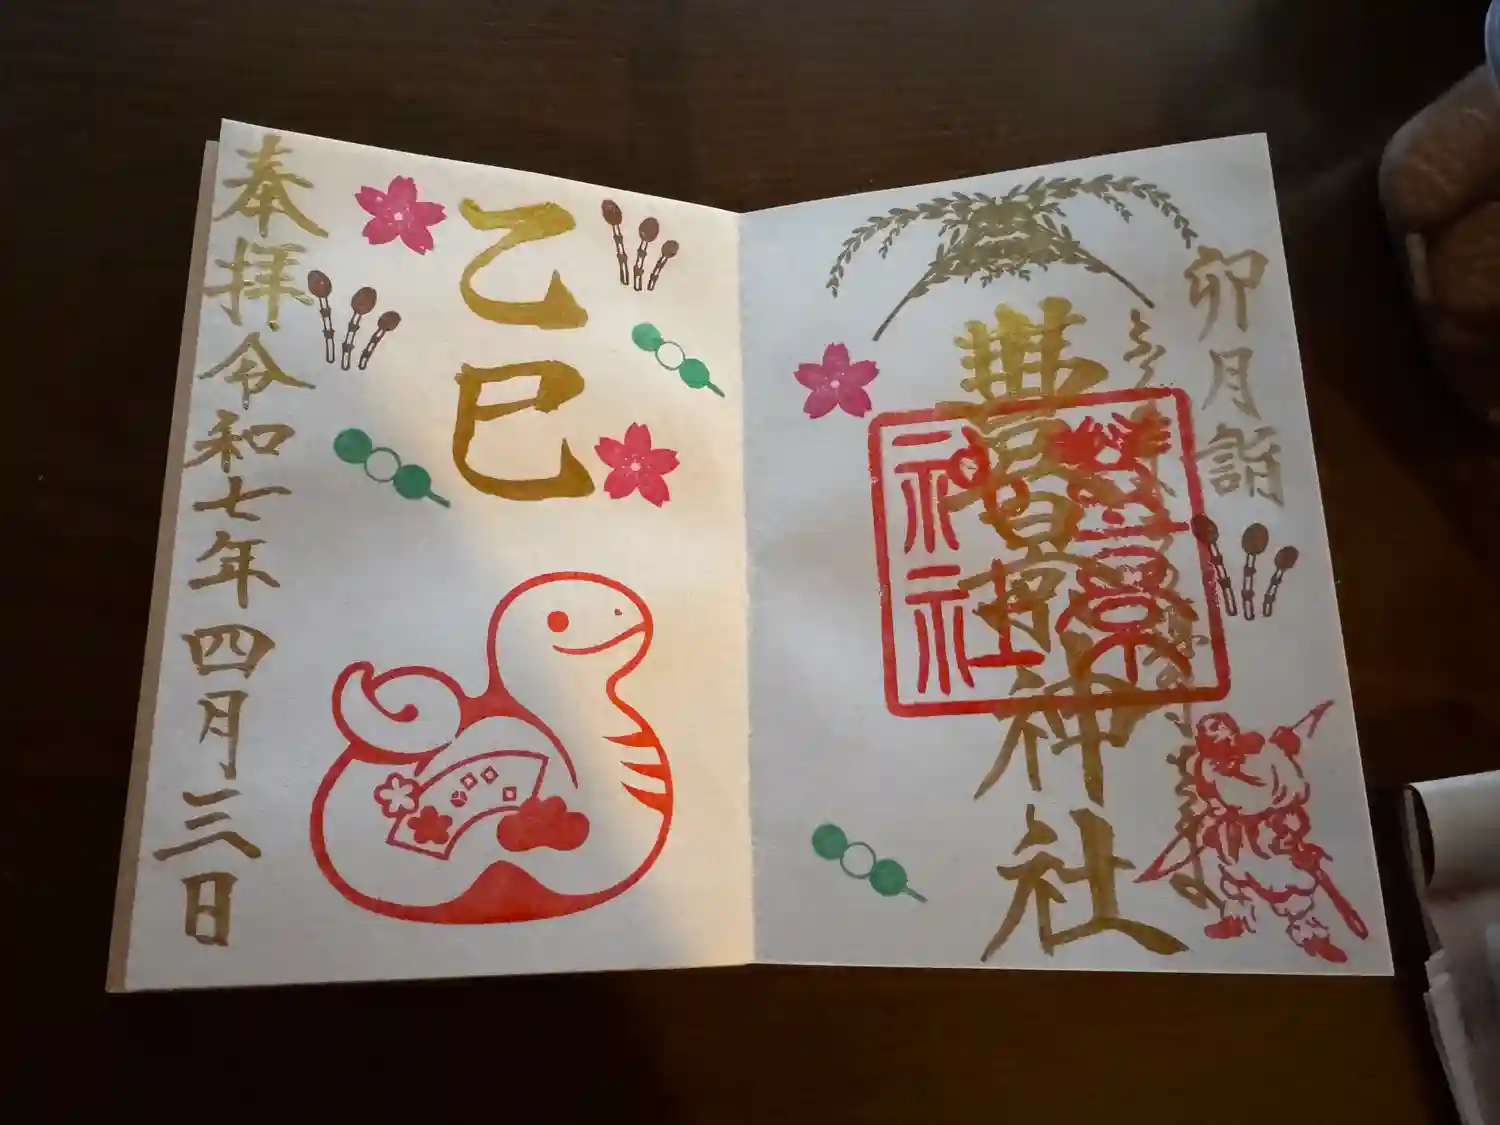 卯月詣
豐景神社
豐景
神社
乙巳
奉拝 令和七年四月三日